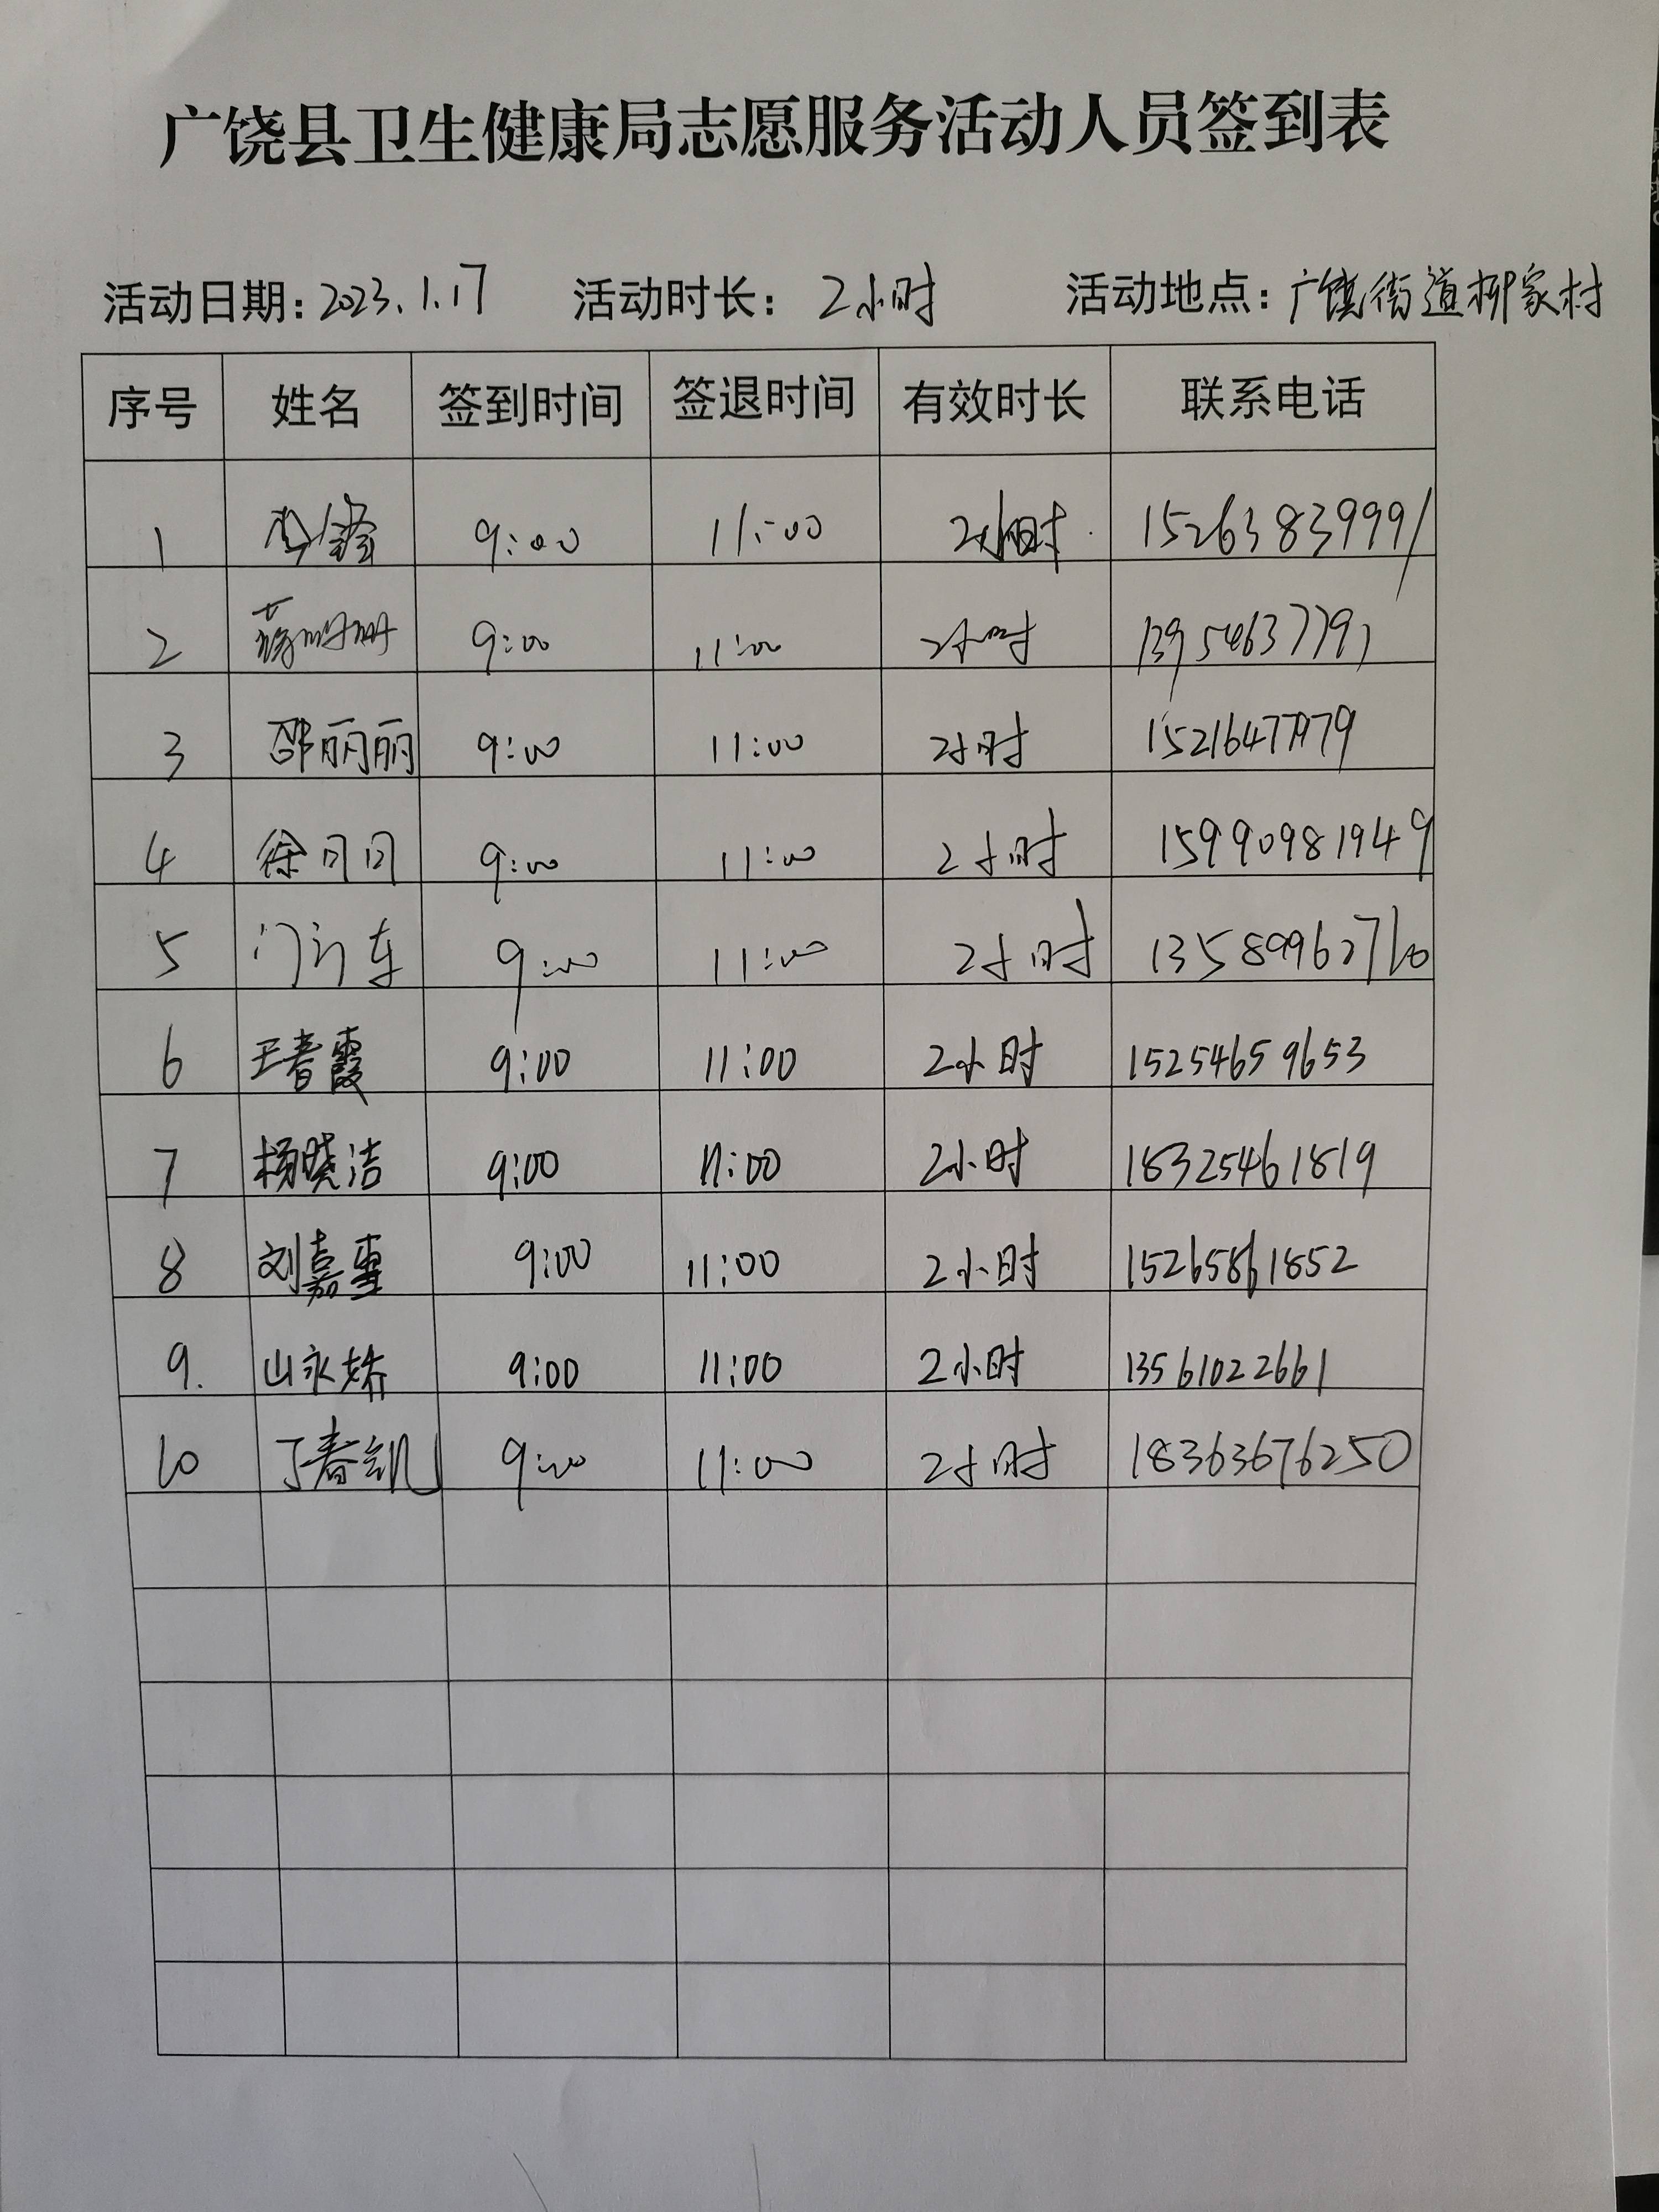 广饶县卫生健康局志愿服务活动人员签到表
活动日期: 2023.1.17 活动时长: 2小时 活动地点: 广饶街道柳家村
序号 姓名 签到时间 签退时间 有效时长 联系电话
1 9:00 11:00 2小时 15263839991
2 9:00 11:00 2小时
3 邵丽丽 9:00 11:00 2小时
4 徐日日 9:00 11:00 2小时 15990981949
5 9:00 11:00 2小时
6 王春霞 9:00 11:00 2小时 15254659653
7 杨晓洁 9:00 11:00 2小时 18325461819
8 刘嘉 9:00 11:00 2小时 15265861852
9. 山永娇 9:00 11:00 2小时 13561022661
10 丁春凯 9:00 11:00 2小时 18363676250